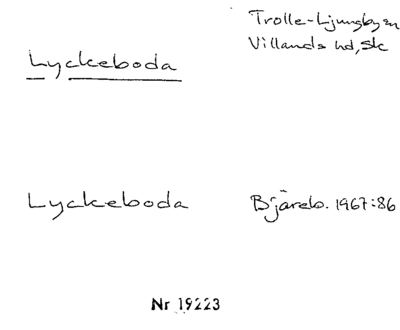 Trolle-Ljungby sn
Villands hd, Sk
Lyckeboda
Lyckeboda
Bjärelo. 1967:86
Nr 19223